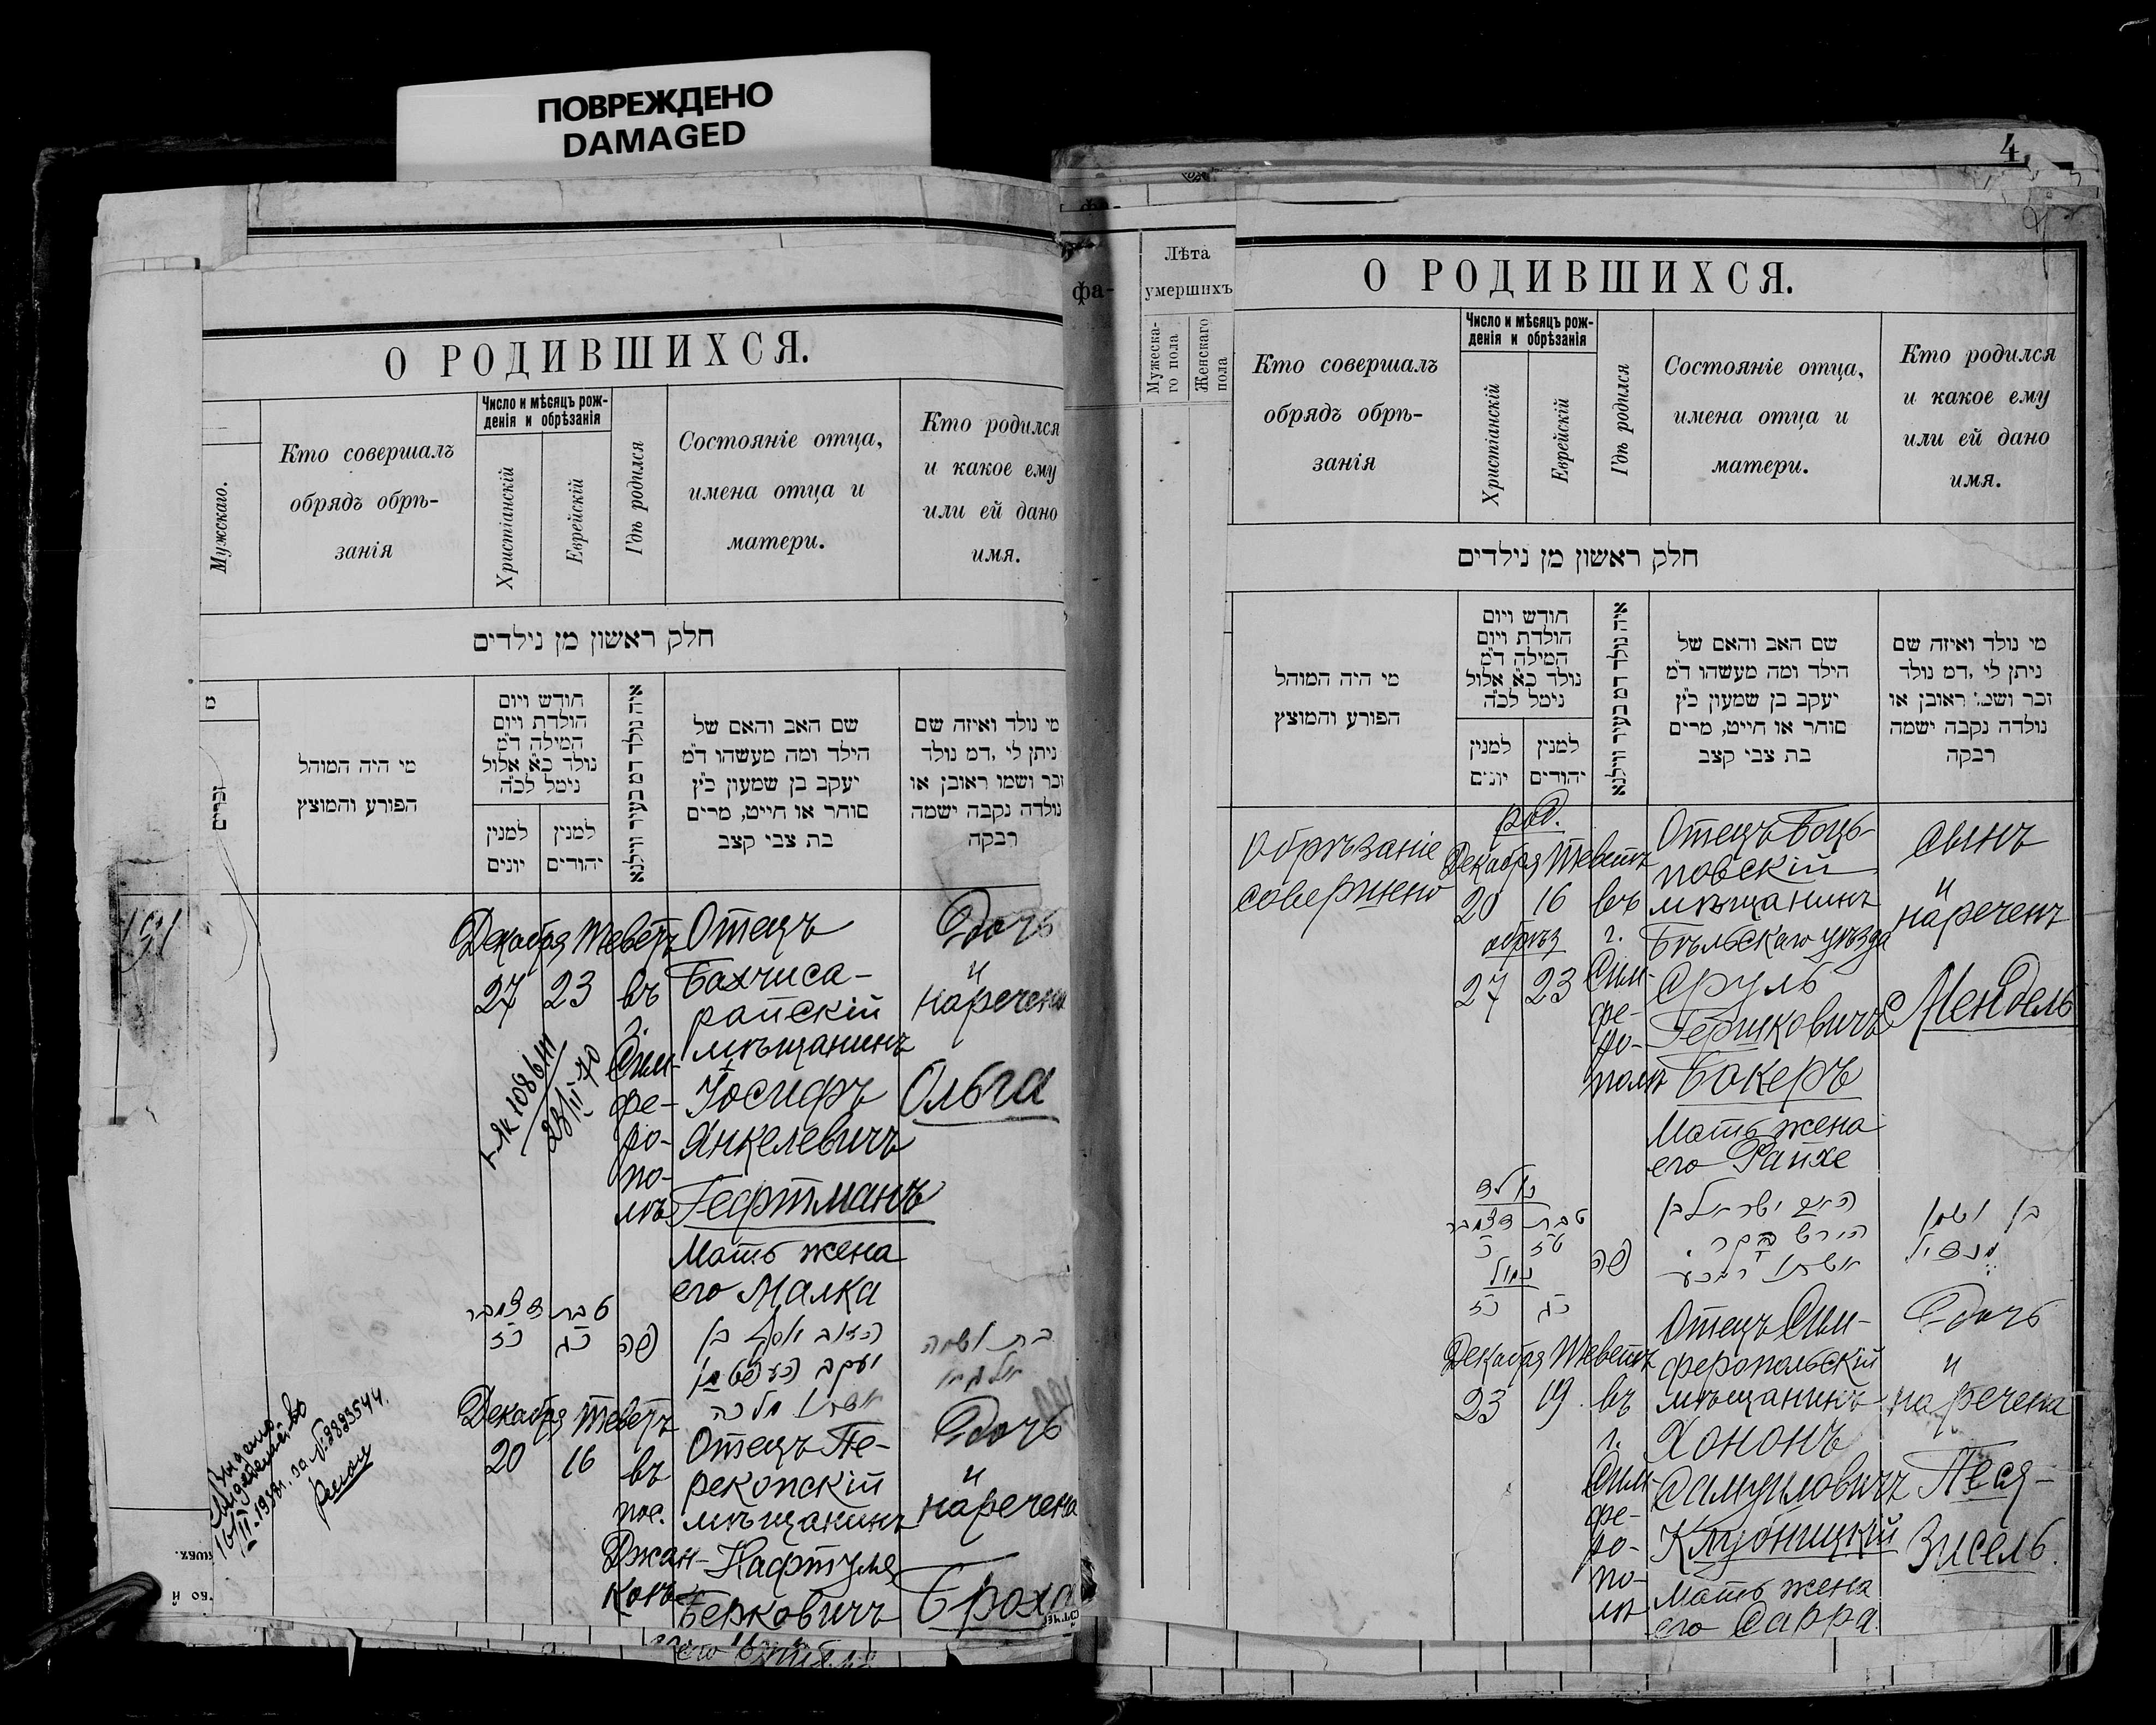 ПОВРЕЖДЕНО
DAMAGED
О РОДИВШИХСЯ.
Мужскаго.
Кто совершалъ
обрядъ обрѣ-
занія
Число и мѣсяцъ рож-
денія и обрѣзанія
Христіанскій
Еврейскій
Гдѣ родился
Состояніе отца,
имена отца и
матери.
Кто родился
и какое ему
или ей дано
имя.
חלק ראשון מן נילדים
זכרים
מי היה המוהל
הפורע והמוצץ
חודש ויום
הולדת ויום
המילה ד"מ
נולד כ"א אלול
נימל לכ"ה
למנין
יונים
למנין
יהודים
איה נולד דמ בעיר ווילנא
שם האב והאם של
הילד ומה מעשהו ד"מ
יעקב בן שמעון כ"ץ
סוחר או חייט, מרים
בת צבי קצב
מי נולד ואיזה שם
ניתן לי ,דמ נולד
זכר ושמו ראובן או
נולדה נקבה ישמה
רבקה
Декабря Теветъ
27 23
въ
г.
Сим-
фе-
ро-
по-
лѣ
Отецъ
Бахчиса-
райскій
мѣщанинъ
Іосифъ
Янкелевичъ
Гефтманъ
Мать жена
его Малка
Дочь
и
наречена
Ольга
דצמבר
כז
טבת
כג
פה
יוסף בן
יעקב העפטמן
אשתו מלכה
בת ושמה
Декабря Теветъ
20 16
въ
пос.
Джан-
коѣ
Отецъ Пе-
рекопскій
мѣщанинъ
Нафтула
Берковичъ
Дочь
и
наречена
Броха
Выдано
свидетельство
за № 3893544.
4
фа-
Лѣта
умершихъ
Мужеска-
го пола
Женскаго
пола
О РОДИВШИХСЯ.
Кто совершалъ
обрядъ обрѣ-
занія
Число и мѣсяцъ рож-
денія и обрѣзанія
Христіанскій
Еврейскій
Гдѣ родился
Состояніе отца,
имена отца и
матери.
Кто родился
и какое ему
или ей дано
имя.
חלק ראשון מן נילדים
מי היה המוהל
הפורע והמוצץ
חודש ויום
הולדת ויום
המילה ד"מ
נולד כ"א אלול
נימל לכ"ה
למנין
יונים
למנין
יהודים
איה נולד דמ בעיר ווילנא
שם האב והאם של
הילד ומה מעשהו ד"מ
יעקב בן שמעון כ"ץ
סוחר או חייט, מרים
בת צבי קצב
מי נולד ואיזה שם
ניתן לי ,דמ נולד
זכר ושמ: ראובן או
נולדה נקבה ישמה
רבקה
Обрѣзаніе
совершено
род.
Декабря Теветъ
20 16
обрѣз
27 23
въ
г.
Сим-
фе-
ро-
полѣ
Отецъ Боць-
повскій
мѣщанинъ
Бѣльскаго уѣзда
Сруль
Гершковичъ
Бокеръ
Мать жена
его Райхе
сынъ
и
нареченъ
Мендель
נולד
טבת דצמבר
טז כ
נמול
כג כז
פה
ישראל בן
הירש בקר
אשתו
בן ושמו
מנדיל
Декабря Теветъ
23 19
въ
г.
Сим-
фе-
ро-
по-
лѣ
Отецъ Сим-
феропольскій
мѣщанинъ
Хононъ
Самуиловичъ
Клубницкій
Мать жена
его Сарра.
Дочь
и
наречена
Песя-
Зисель.